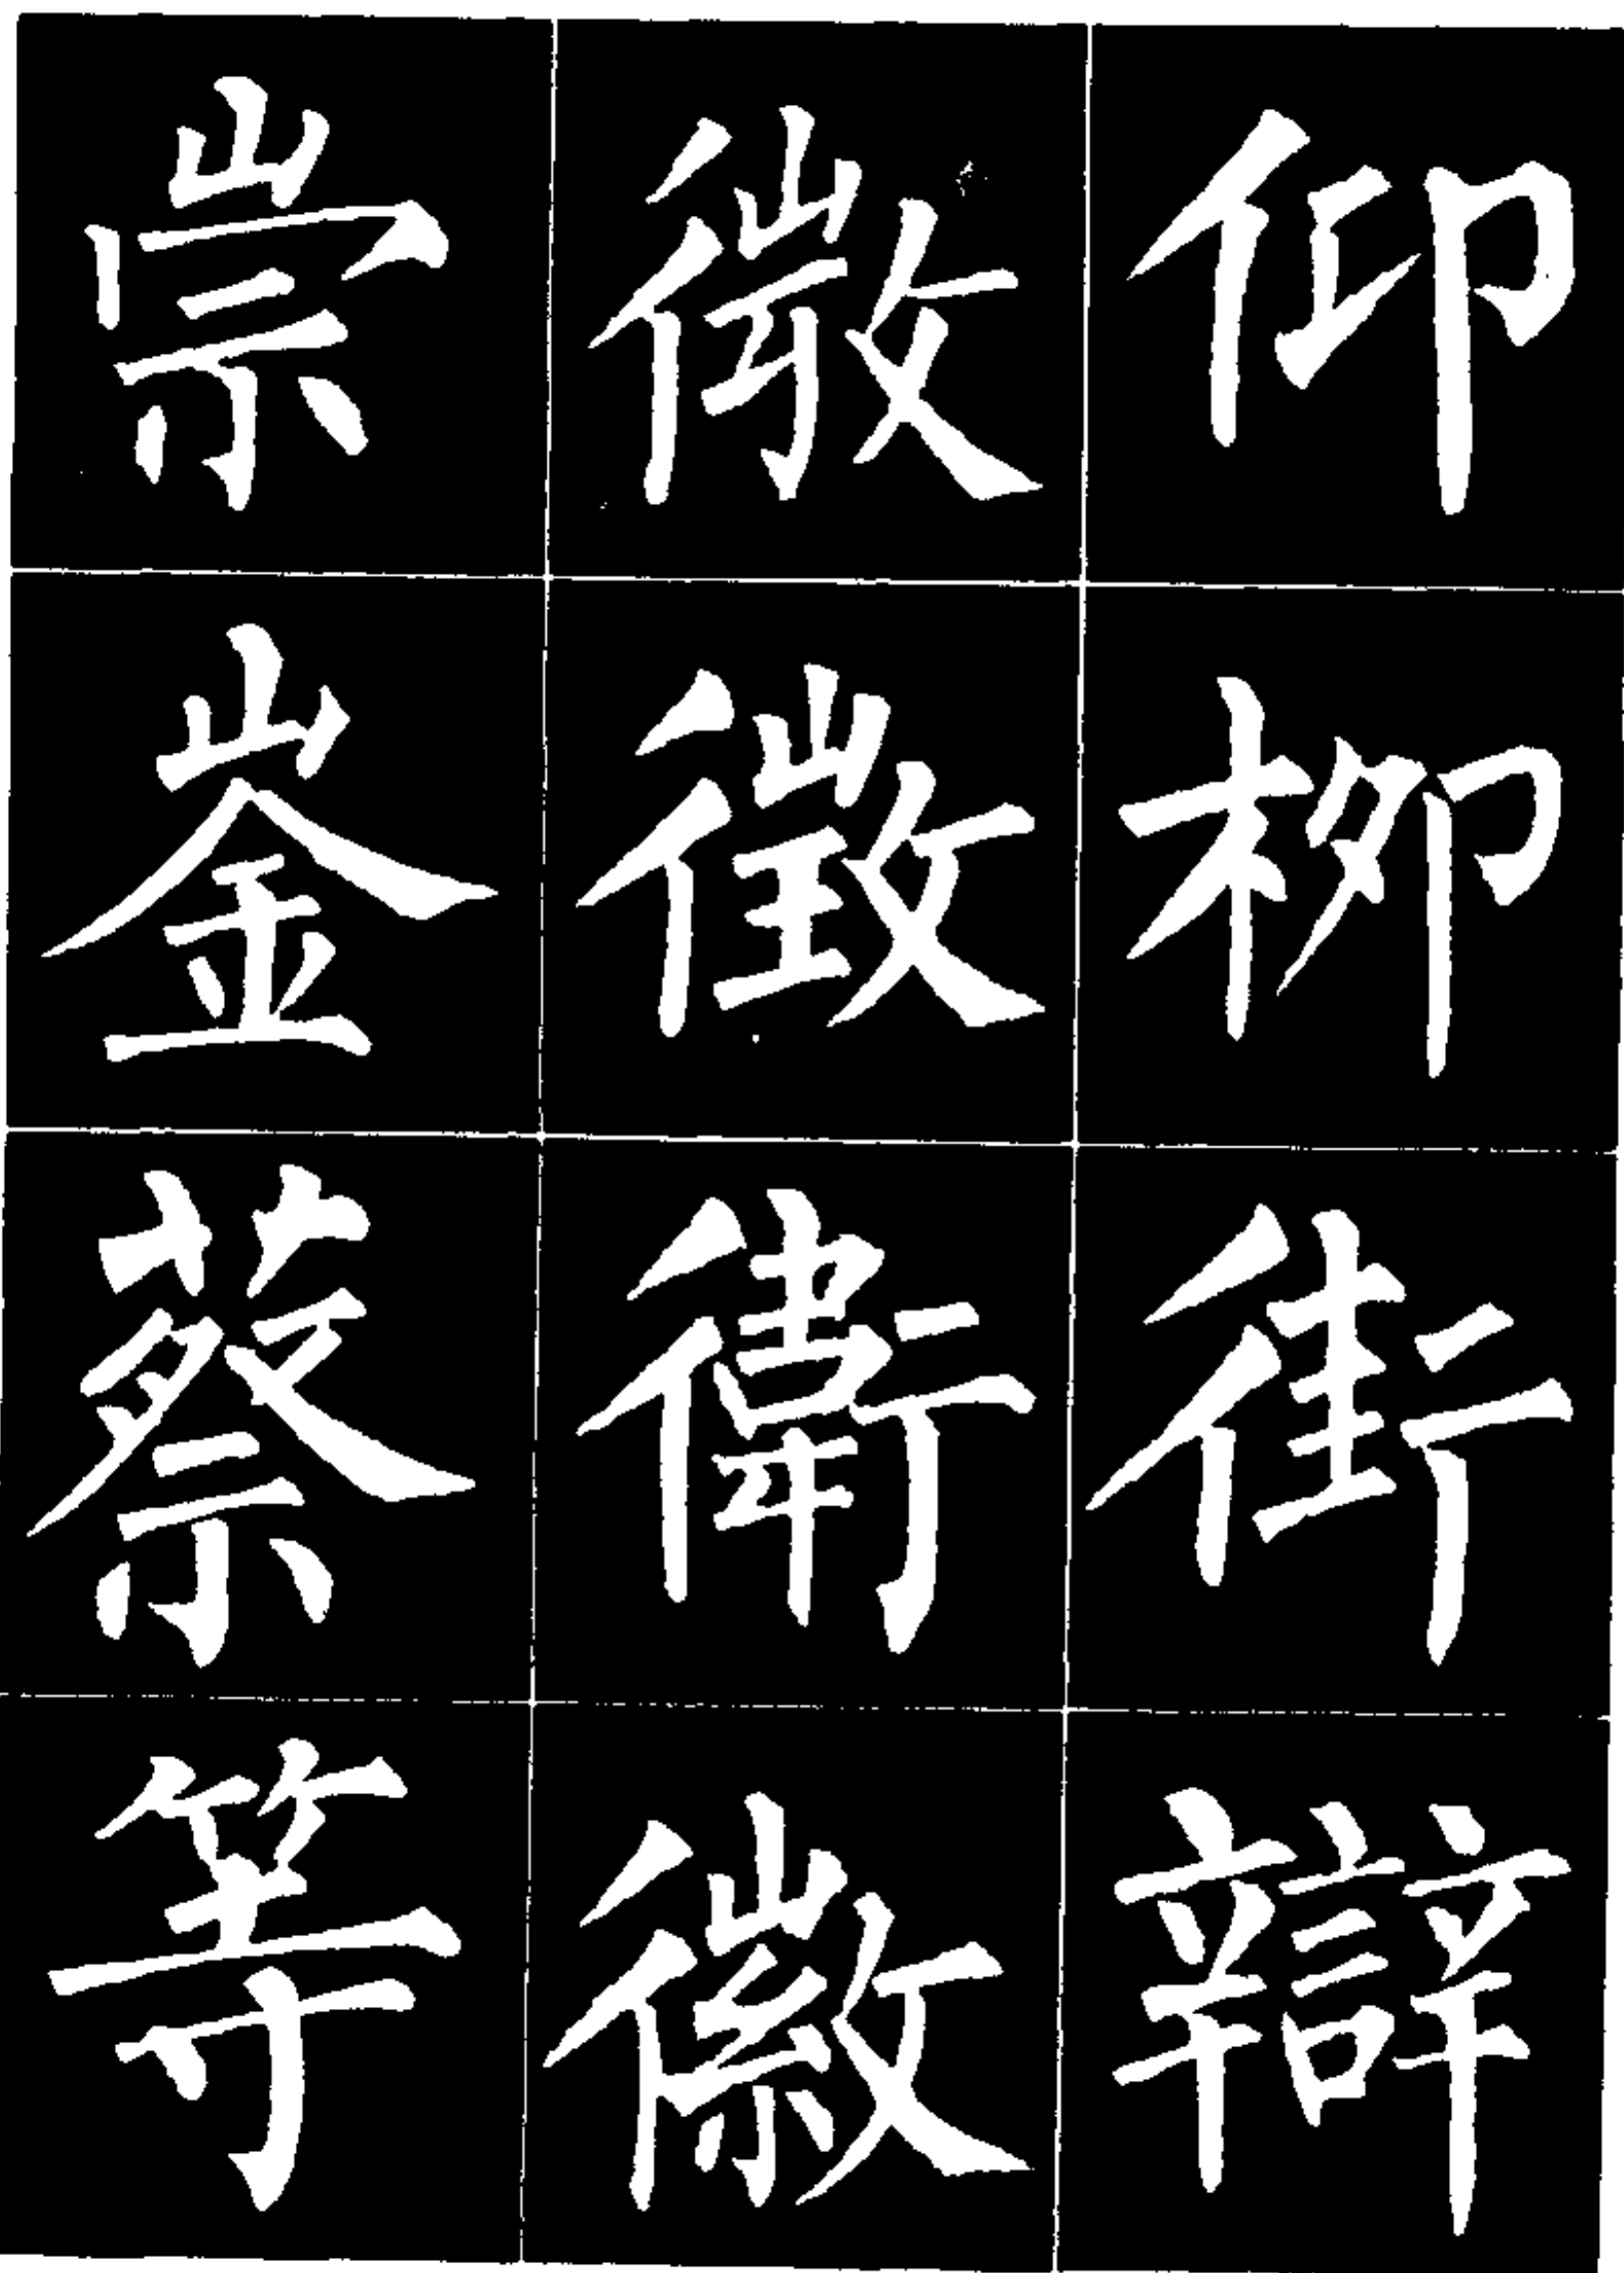 仰柳街辯
微徵衛徽
崇崟蔡等